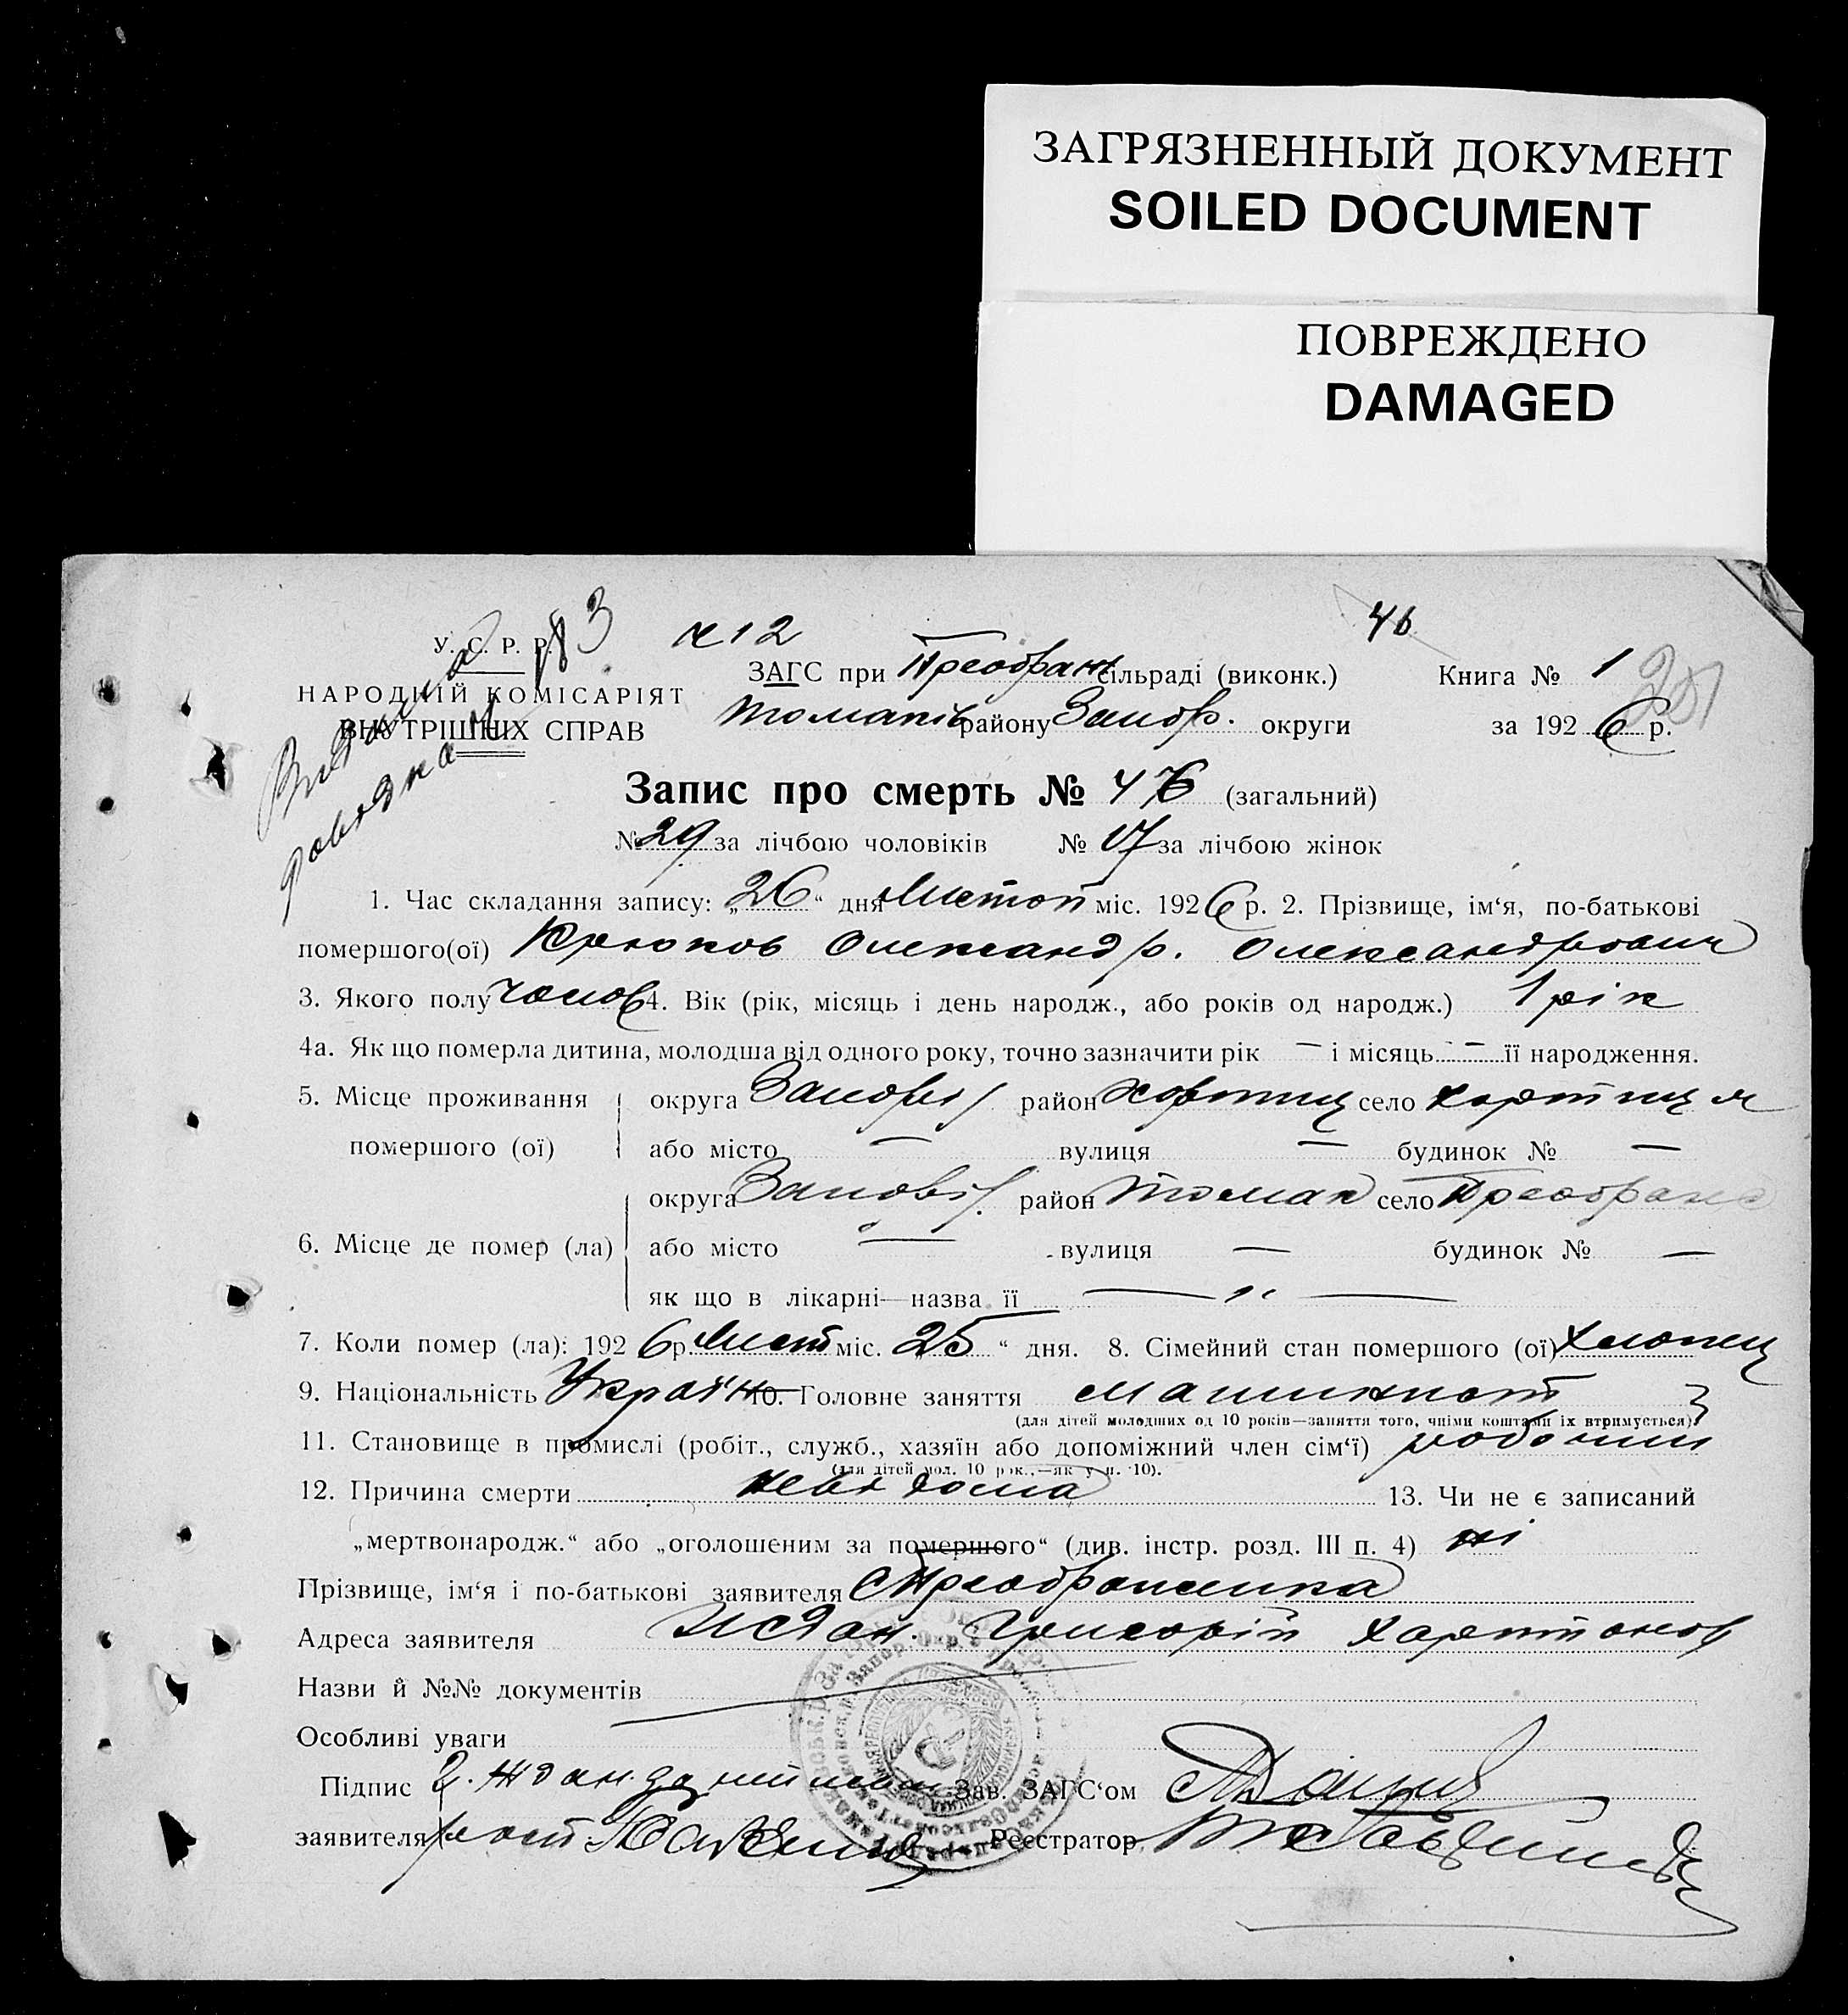 ЗАГРЯЗНЕННЫЙ ДОКУМЕНТ
SOILED DOCUMENT
ПОВРЕЖДЕНО
DAMAGED
У. С. Р. Р. 183 ч 12 46
НАРОДНІЙ КОМІСАРІЯТ
ВНУТРІШНІХ СПРАВ
Видана
довідка
ЗАГС при Преображ сільраді (виконк.) Книга № 1
Томаків району Запор. округи за 1926 р.
Запис про смерть № 46 (загальний)
№ 29 за лічбою чоловіків № 17 за лічбою жінок
1. Час складання запису: „26“ дня Листоп міс. 1926 р. 2. Прізвище, ім‘я, по-батькові
помершого(ої) Крюков Олександр. Олександрович
3. Якого полу чолов 4. Вік (рік, місяць і день народж., або років од народж.) 1 рік
4а. Як що померла дитина, молодша від одного року, точно зазначити рік — і місяць — її народження.
5. Місце проживання округа Запоріз район Хортиц село Хортиця
помершого (ої) або місто — вулиця — будинок № —
округа Запоріз. район Томак село Преображ
6. Місце де помер (ла) або місто — вулиця — будинок № —
як що в лікарні—назва її — „ —
7. Коли помер (ла): 1926 р. Лист міс. „25“ дня. 8. Сімейний стан помершого (ої) хлопець
9. Національність Україн 10. Головне заняття машиніст
(для дітей молодших од 10 років—заняття того, чиїми коштами їх втримується).
11. Становище в промислі (робіт., служб., хазяїн або допоміжний член сім‘ї) робочий
(для дітей мол. 10 рок.,—як у п. 10).
12. Причина смерти невідома 13. Чи не є записаний
„мертвонародж.“ або „оголошеним за помершого“ (див. інстр. розд. III п. 4) ні
Прізвище, ім‘я і по-батькові заявителя с Преображенка
Адреса заявителя Ждан. Григорій Харитонов
Назви й №№ документів
Особливі уваги
Підпис Г. Ждан. Зав. ЗАГС‘ом
заявителя Реєстратор